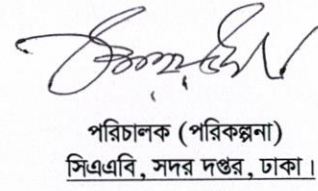 পরিচালক (পরিকল্পনা)
সিএএবি, সদর দপ্তর, ঢাকা।